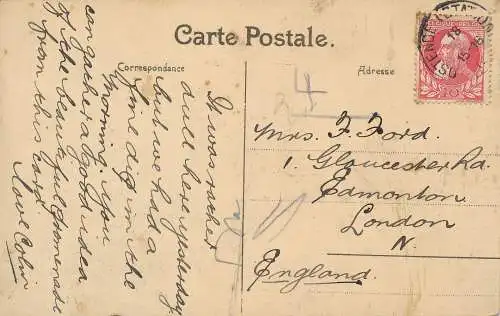 Carte Postale.
Correspondance
Adresse
It was rather
dull here yesterday
but we had a
fine dip in the
morning. You
can gather a good idea
of the beautiful promenade
from this card
Love Colin
4
Mrs. F. Ford.
1. Gloucester Rd.
Edmonton
London
N.
England.